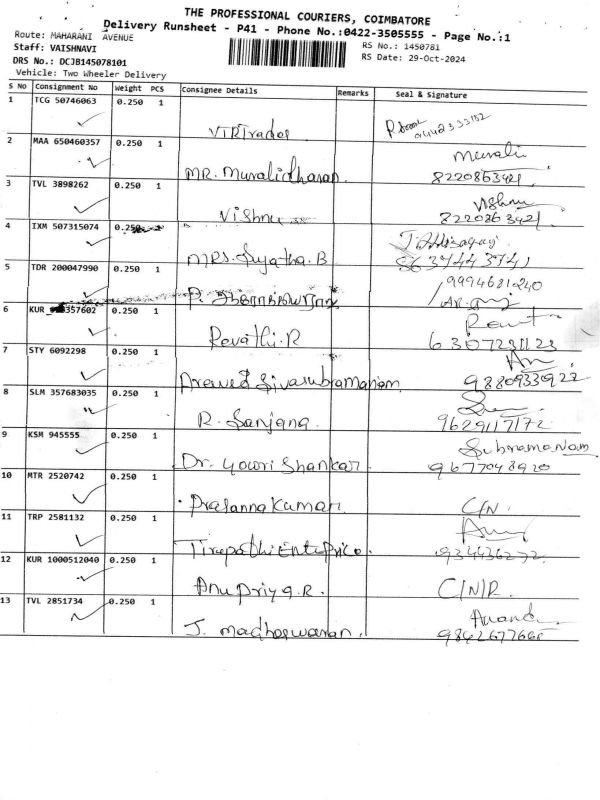 THE PROFESSIONAL COURIERS, COIMBATORE
Delivery Runsheet - P41 - Phone No.:0422-3505555 - Page No.:1
Route: MAHARANI AVENUE
Staff: VAISHNAVI
DRS No.: DCJB145078101
Vehicle: Two Wheeler Delivery
RS No.: 1450781
RS Date: 29-Oct-2024
S No Consignment No Weight PCS Consignee Details Remarks Seal & Signature
1 TCG 50746063 0.250 1
VTRTrades 9442333152
2 MAA 650460357 0.250 1
MR. Muralidharan Murali
8220863421
3 TVL 3898262 0.250 1
Vishnu Vishnu
8220863421
4 IXM 507315074 0.250
MRS. Sujatha.B
5637443741
5 TDR 200047990 0.250 1
P. 9994681240
6 KUR 357602 0.250 1
Revathi.R
6307231123
7 STY 6092298 0.250 1
Araved Sivasubramaniam
9880933922
8 SLM 357683035 0.250 1
R. Sanjana
9629117172
9 KSM 945555 0.250 1
Dr. Gowri Shankar Subramaniam
9677048920
10 MTR 2520742 0.250 1
Prasanna Kumar C/N.
11 TRP 2581132 0.250 1
Tirupathi EntePrice.
934436272
12 KUR 1000512040 0.250 1
Anu Priya.R. C/N/R.
13 TVL 2851734 0.250 1
J. Madheswaran. Anand
9842677666